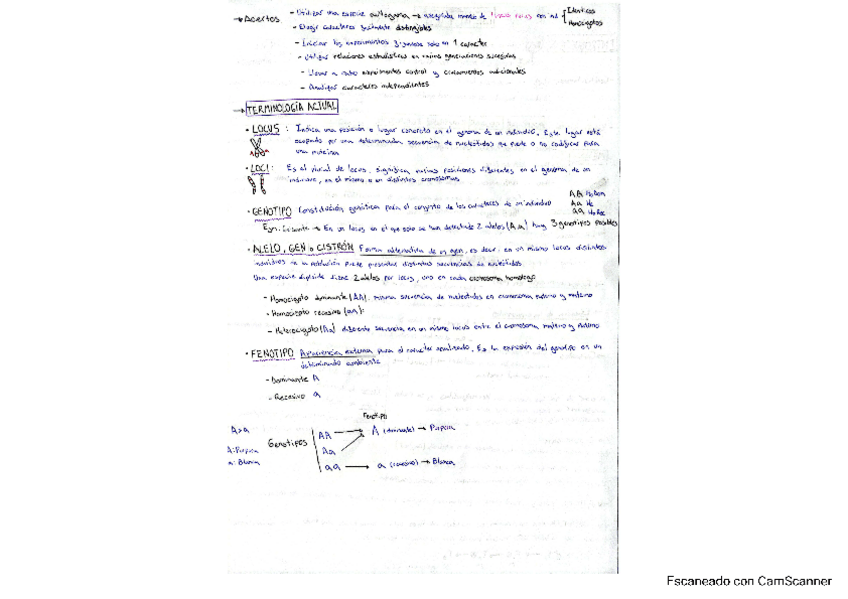 → Acertos - Utilizar una especie autógama → aseguraba manejo de líneas puras Idénticos
Homocigotos
- Elegir caracteres fácilmente distinguibles
- Iniciar los experimentos fijándose solo en 1 carácter
- Utilizar relaciones estadísticas en varias generaciones sucesivas
- Llevar a cabo experimentos control y cruzamientos adicionales
- Analizar caracteres independientes
→ TERMINOLOGÍA ACTUAL
• LOCUS: Indica una posición o lugar concreto en el genoma de un individuo. Este lugar está
ocupado por una determinada secuencia de nucleótidos que puede o no codificar para
una proteína
• LOCI: Es el plural de locus, significa varias posiciones diferentes en el genoma de un
individuo, en el mismo o en distintos cromosomas
• GENOTIPO Constitución genética para el conjunto de los caracteres de un individuo
AA
Aa
→ En un locus en el que solo se han detectado 2 alelos (A,a) hay 3 genotipos posibles
• ALELO, GEN o CISTRÓN Forma alternativa de un gen, es decir, en un mismo locus distintos
individuos de la población puede presentar distintas secuencias de nucleótidos
Una especie diploide tiene 2 alelos por locus, uno en cada cromosoma homólogo
- Homocigoto dominante (AA): misma secuencia de nucleótidos en cromosoma paterno y materno
- Homocigoto recesivo (aa):
- Heterocigoto (Aa) diferente secuencia en un mismo locus entre el cromosoma materno y paterno
• FENOTIPO Apariencia externa para el carácter analizado. Es la expresión del genotipo en un
determinado ambiente
- Dominante A
- Recesivo a
Fenotipo
A>a
Genotipos
AA → A (dominante) → Púrpura
A: Púrpura
Aa
a: Blanca
aa → a (recesivo) → Blanca
Escaneado con CamScanner